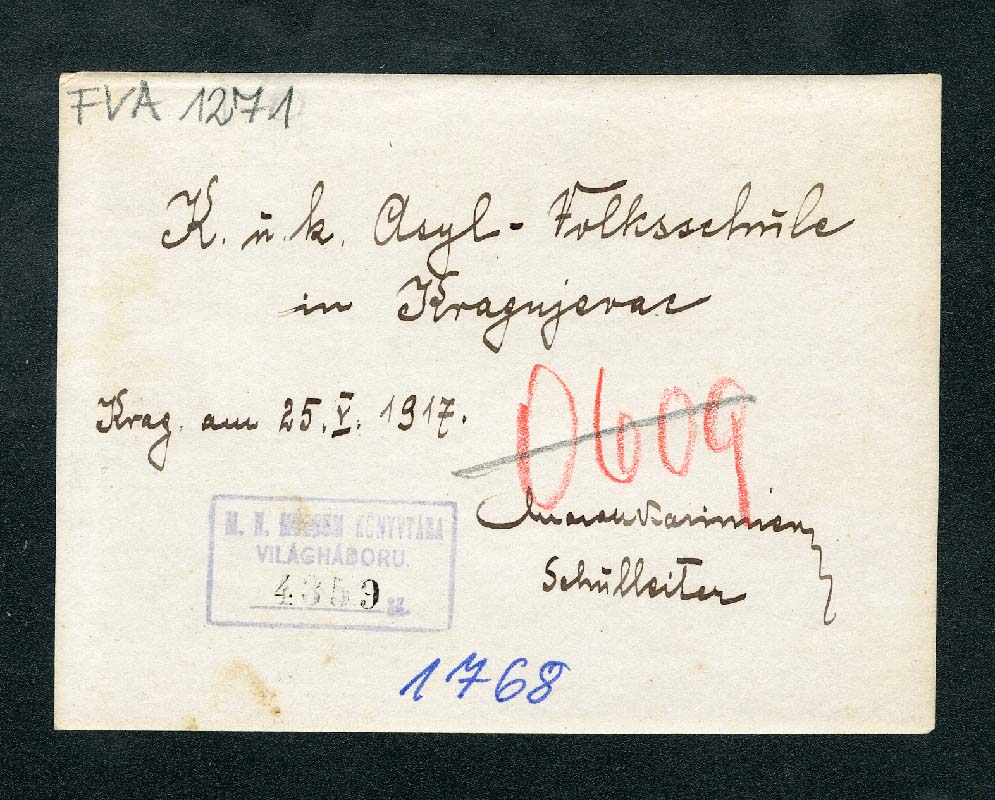 FVA 1271
K. u. k. Asyl-Volksschule
in Kragujevac
Krag. am 25. V. 1917.
0609
M. N. MÚZEUM KÖNYVTÁRA
VILÁGHÁBORU.
4359 sz.
Schulleiter
1768